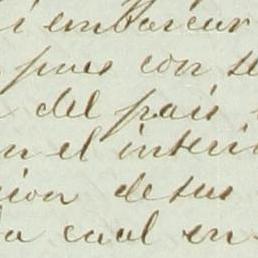 i embarcar
pues con se
del pais
n el interi
cion de sus
la cual en